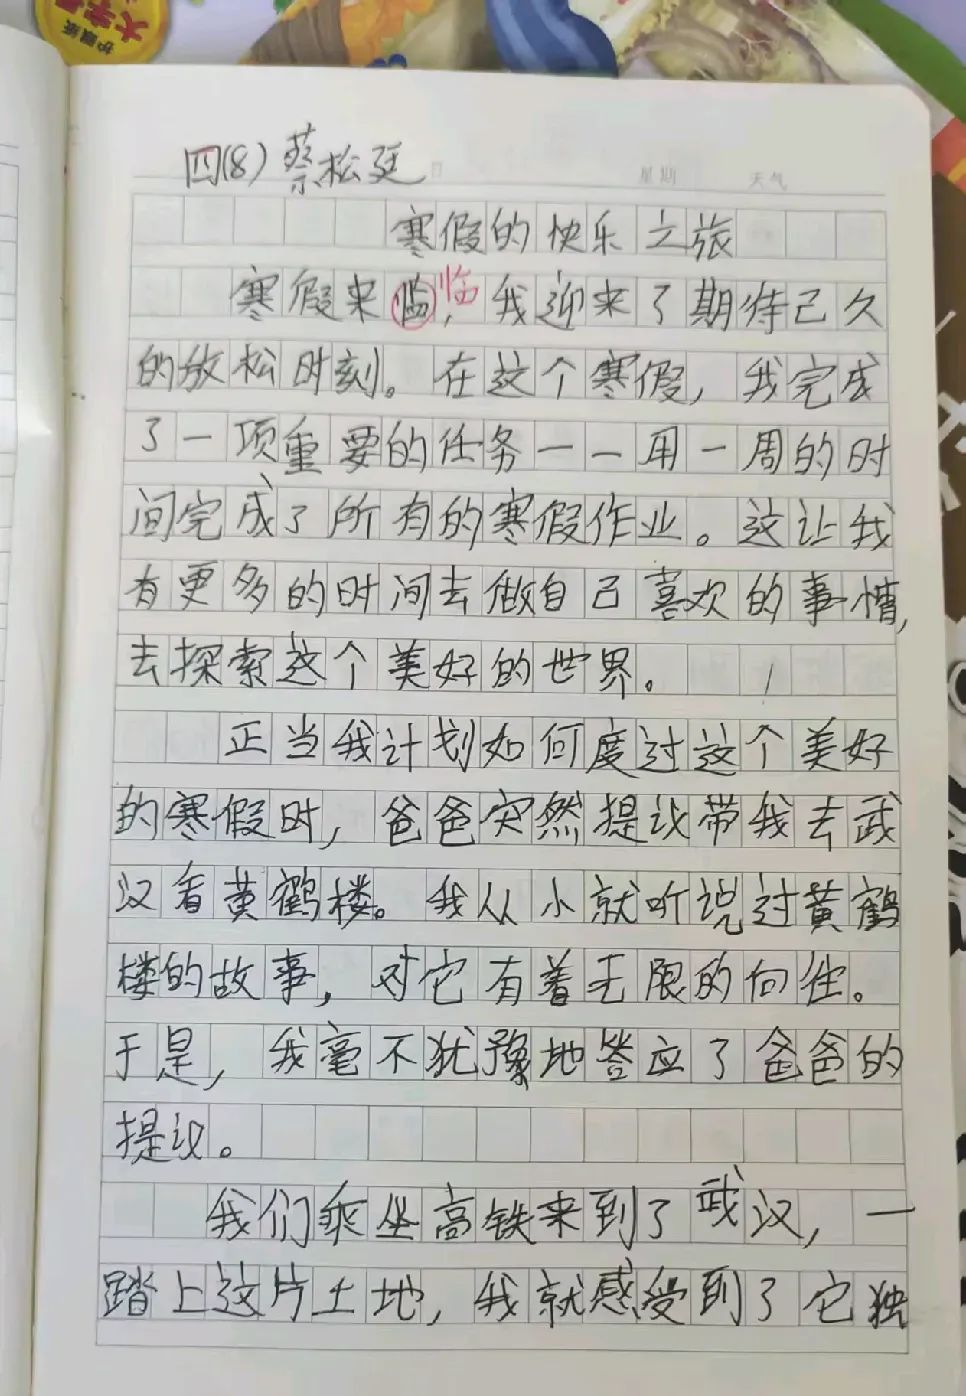 护眼版
大字
四(8) 蔡松廷
日 星期 天气
寒假的快乐之旅
寒假来临,我迎来了期待己久
的放松时刻。在这个寒假,我完成
了一项重要的任务一一用一周的时
间完成了所有的寒假作业。这让我
有更多的时间去做自己喜欢的事情,
去探索这个美好的世界。
正当我计划如何度过这个美好
的寒假时,爸爸突然提议带我去武
汉看黄鹤楼。我从小就听说过黄鹤
楼的故事,对它有着无限的向往。
于是,我毫不犹豫地答应了爸爸的
提议。
我们乘坐高铁来到了武汉,一
踏上这片土地,我就感受到了它独